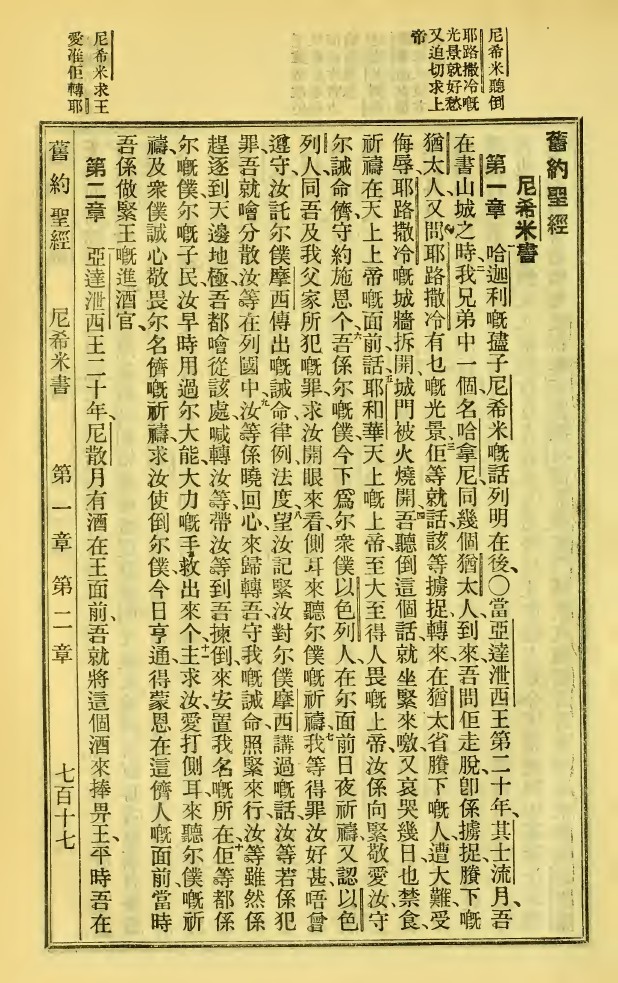 尼希米聽倒
耶路撒冷嘅
光景就好愁
又迫切求上
帝
尼希米求王
愛准佢轉耶
舊約聖經
尼希米書
第一章 哈迦利嘅孻子尼希米嘅話列明在後、〇當亞達泄西王第二十年、其士流月、吾
在書山城之時、二我兄弟中一個名哈拿尼同幾個猶太人到來、吾問佢走脫、卽係擄捉賸下嘅
猶太人、又問耶路撒冷有乜嘅光景、三佢等就話該等擄捉轉來、在猶太省賸下嘅人、遭大難受
侮辱、耶路撒冷嘅城牆拆開、城門被火燒開、四吾聽倒這個話、就坐緊來噭、又哀哭幾日、也禁食、
祈禱在天上上帝嘅面前、五話耶和華天上嘅上帝、至大至得人畏嘅上帝、汝係向緊敬愛汝守
尔誡命儕、守約施恩个、六吾係尔嘅僕、今下爲尔衆僕以色列人、在尔面前日夜祈禱、又認以色
列人同吾及我父家所犯嘅罪、求汝開眼來看、側耳來聽尔僕嘅祈禱、七我等得罪汝好甚、唔曾
遵守汝託尔僕摩西傳出嘅誡命律例法度、八望汝記緊汝對尔僕摩西講過嘅話、汝等若係犯
罪、吾就噲分散汝等在列國中、九汝等係曉回心來歸轉吾、守我嘅誡命、照緊來行、汝等雖然係
趕逐到天邊地極、吾都噲從該處喊轉汝等、帶汝等到吾揀倒來安置我名嘅所在、十佢等都係
尔嘅僕、尔嘅子民、汝早時用過尔大能大力嘅手、救出來个、十一主求汝愛打側耳來聽尔僕嘅祈
禱、及衆僕誠心敬畏尔名儕嘅祈禱、求汝使倒尔僕今日亨通、得蒙恩在這儕人嘅面前、當時
吾係做緊王嘅進酒官、
第二章 亞達泄西王二十年、尼散月有酒在王面前、吾就將這個酒來捧畀王、平時吾在
舊約聖經 尼希米書 第一章 第二章 七百十七